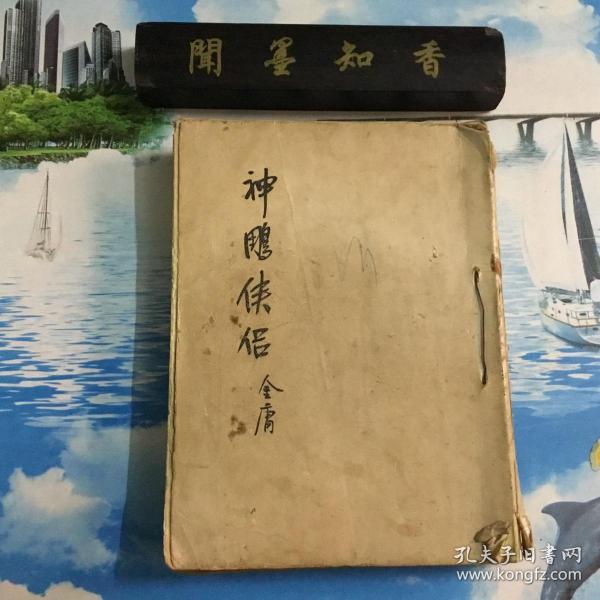 聞墨知香
神鵰侠侣
金庸
孔夫子旧書网
www.kongfz.com